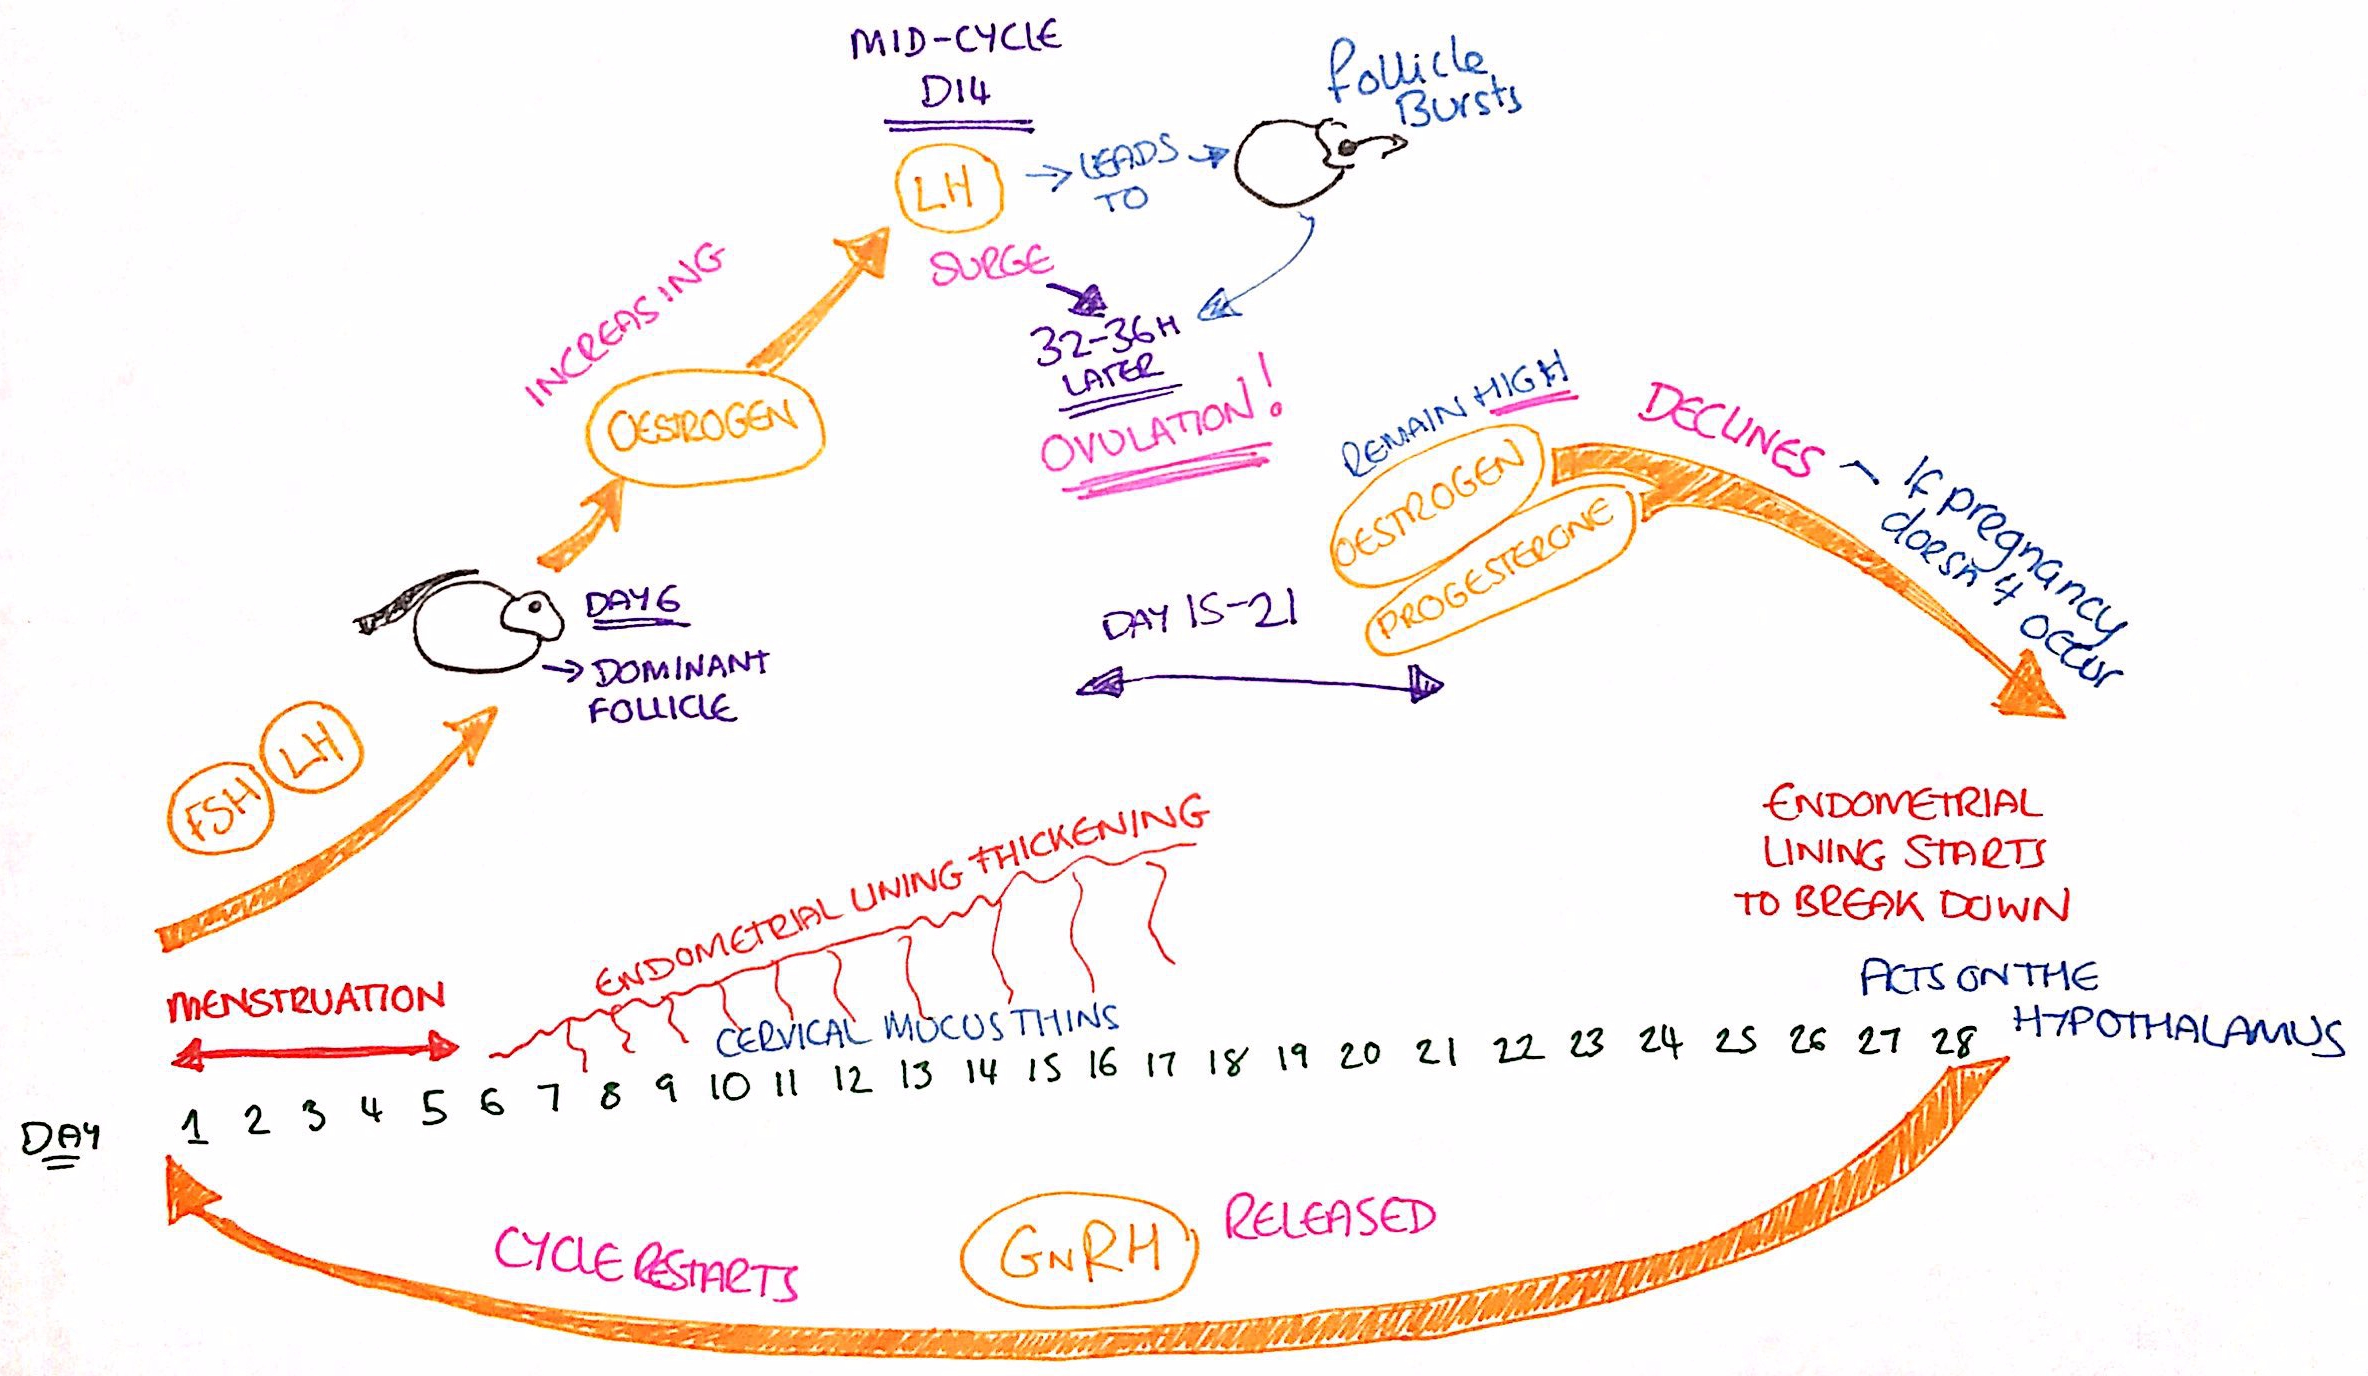 MID-CYCLE
D14
LH
SURGE
→ LEADS →
TO
follicle
Bursts
32-36H
LATER
OVULATION!
INCREASING
OESTROGEN
DAY 6
→ DOMINANT
FOLLICLE
FSH
LH
REMAIN HIGH
OESTROGEN
PROGESTERONE
DAY 15-21
DECLINES - If pregnancy
doesn't occur
ENDOMETRIAL
LINING STARTS
TO BREAK DOWN
ACTS ON THE
HYPOTHALAMUS
MENSTRUATION
ENDOMETRIAL LINING THICKENING
CERVICAL MUCUS THINS
DAY 1 2 3 4 5 6 7 8 9 10 11 12 13 14 15 16 17 18 19 20 21 22 23 24 25 26 27 28
CYCLE RESTARTS
GnRH RELEASED